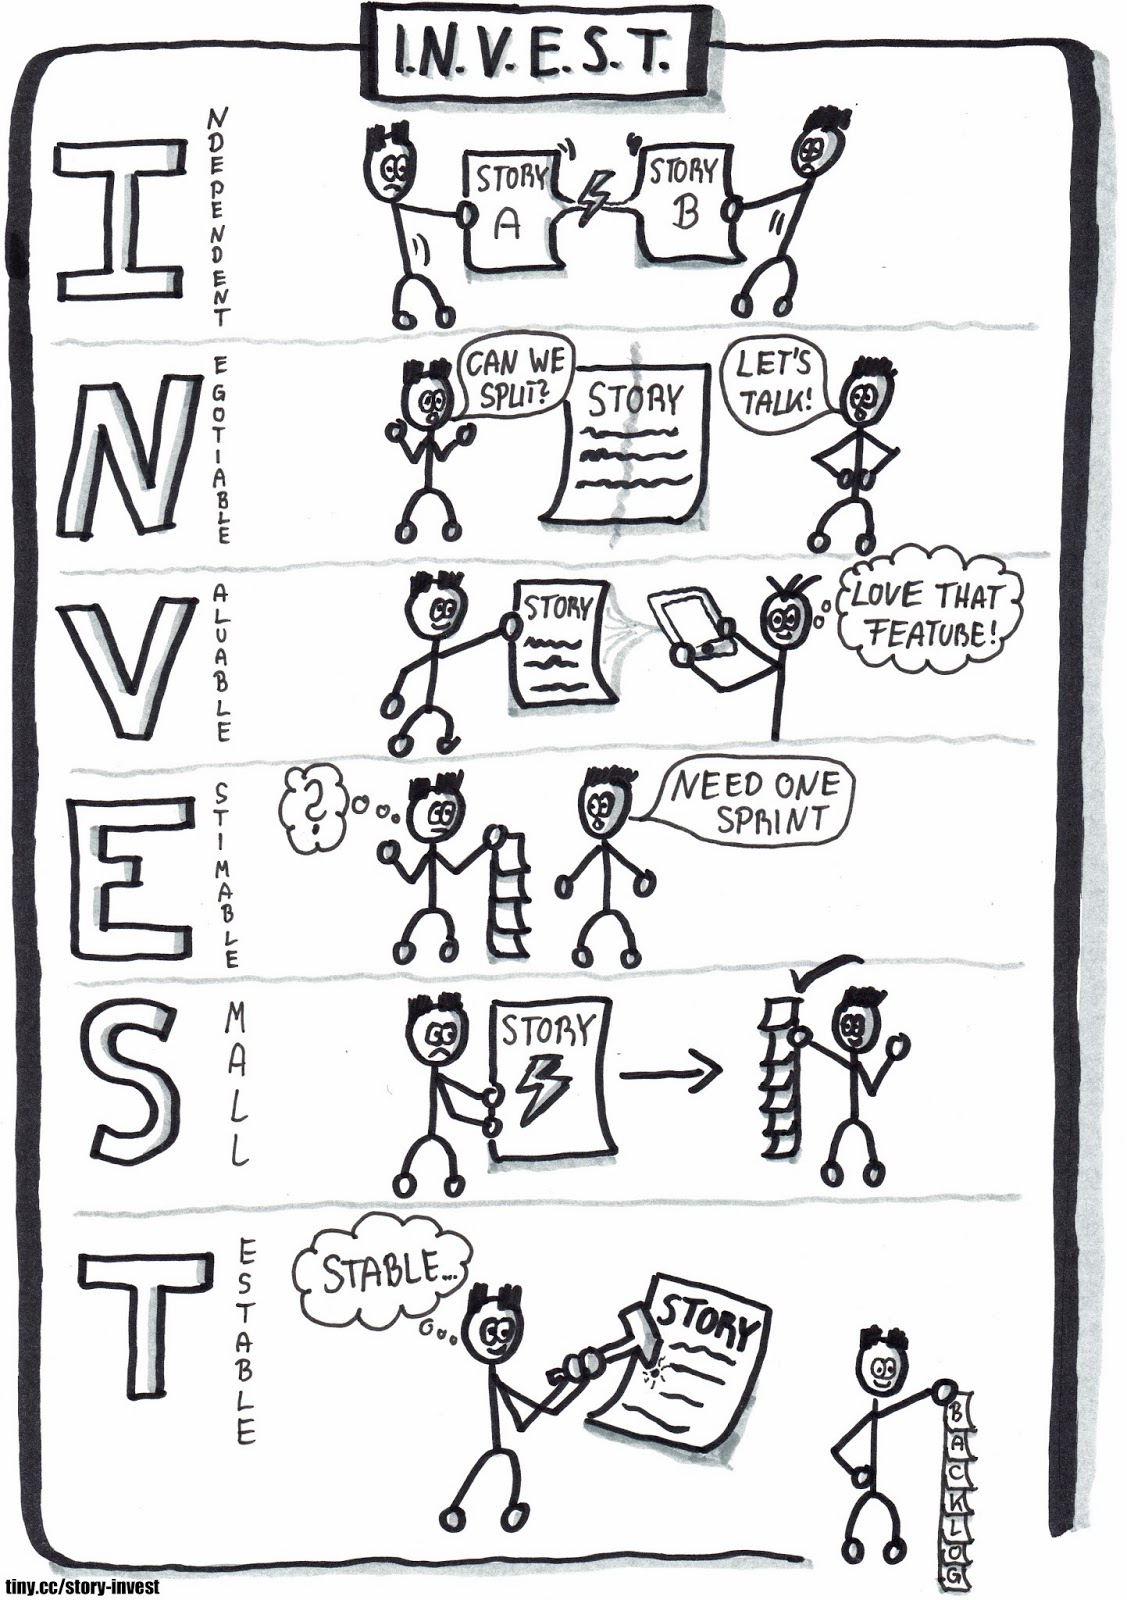 I.N.V.E.S.T.
INDEPENDENT
STORY
A
STORY
B
NEGOTIABLE
CAN WE
SPLIT?
STORY
LET'S
TALK!
VALUABLE
STORY
LOVE THAT
FEATURE!
ESTIMABLE
?
NEED ONE
SPRINT
SMALL
STORY
TESTABLE
STABLE...
STORY
BACKLOG
tiny.cc/story-invest